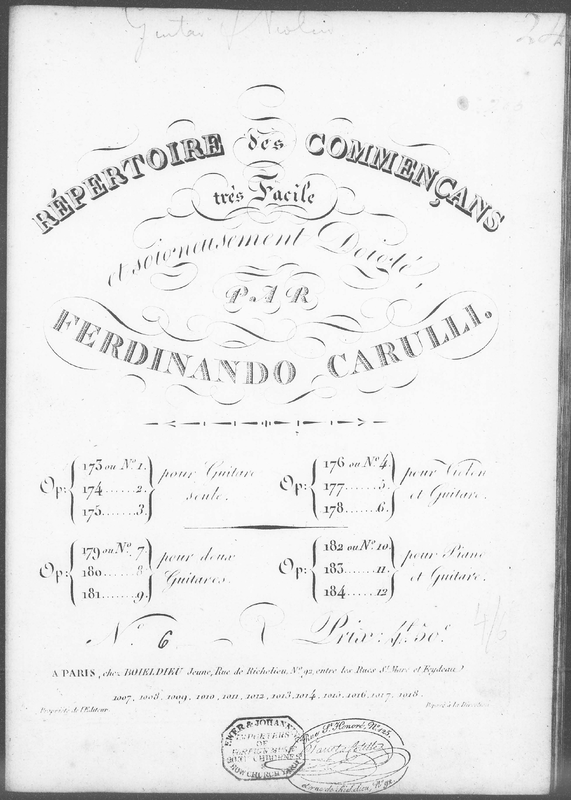 Guitar & Violin
24
RÉPERTOIRE des COMMENÇANS
très Facile
et soigneusement Doigté,
PAR
FERDINANDO CARULLI.
Op: { 173 ou Nº 1. 174......2. 175......3. } pour Guitare seule.
Op: { 176 ou Nº 4. 177......5. 178......6. } pour Violon et Guitare.
Op: { 179 ou Nº 7. 180......8. 181......9. } pour deux Guitares.
Op: { 182 ou Nº 10. 183......11. 184......12 } pour Piano et Guitare.
Nº 6 Prix: 4f. 50c.
4/6
A PARIS, chez BOIELDIEU Jeune, Rue de Richelieu, Nº 92, entre les Rues St Marc et Feydeau.
1007, 1008, 1009, 1010, 1011, 1012, 1013, 1014, 1015, 1016, 1017, 1018.
Propriété de l'Editeur.
Déposé à la Direction.
EWER & JOHANN
IMPORTERS
OF
FOREIGN MUSIC
BOW CHURCH YARD
Rue St Honoré, Nº 125,
et rue de Richelieu, Nº 92